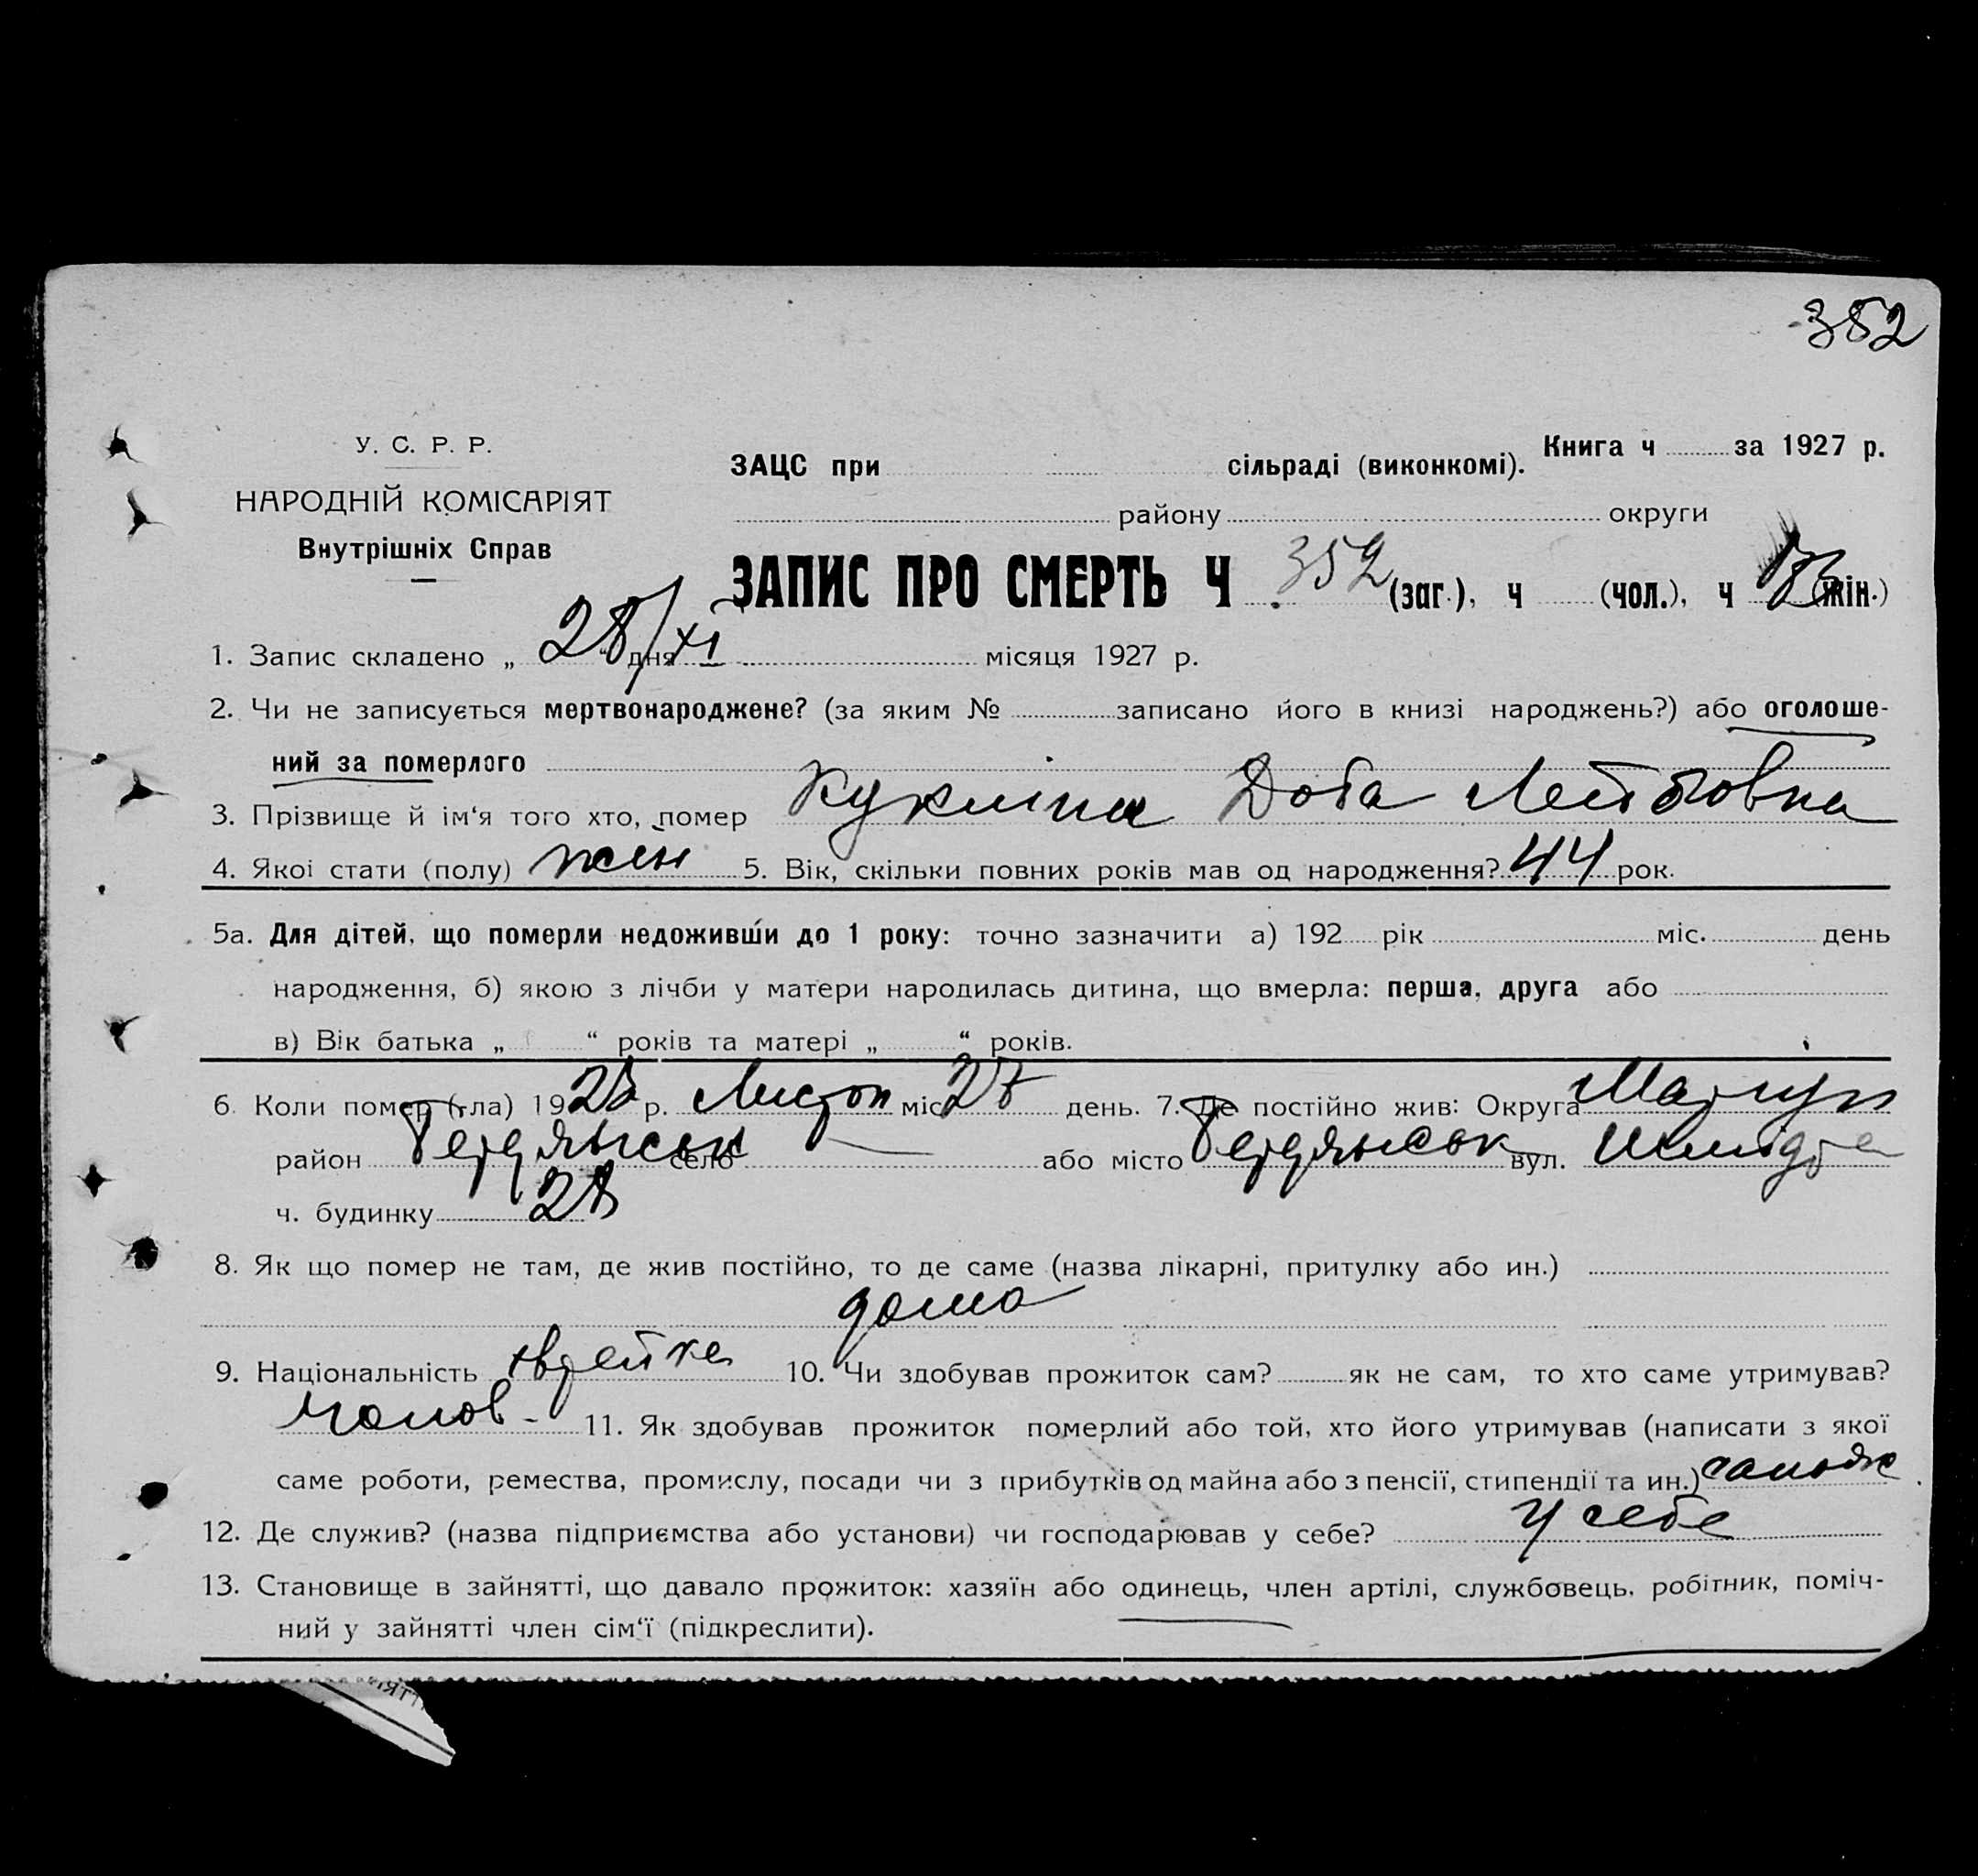 352
У. С. Р. Р.
НАРОДНІЙ КОМІСАРІЯТ
Внутрішніх Справ
ЗАЦС при сільраді (виконкомі). Книга ч за 1927 р.
району округи
ЗАПИС ПРО СМЕРТЬ Ч 352 (заг.), ч (чол.), ч (жін.)
1. Запис складено „ 28/XI “ дня місяця 1927 р.
2. Чи не записується мертвонароджене? (за яким № записано його в книзі народжень?) або оголоше-
ний за померлого
3. Прізвище й ім‘я того хто, помер Кукліна Доба Лейбовна
4. Якоі стати (полу) жін 5. Вік, скільки повних років мав од народження? 44 рок.
5а. Для дітей, що померли недоживши до 1 року: точно зазначити а) 192 рік міс. день
народження, б) якою з лічби у матери народилась дитина, що вмерла: перша, друга або
в) Вік батька „ “ років та матері „ “ років.
6. Коли помер (-ла) 19 р. Листоп міс 27 день. 7. Де постійно жив: Округа Маріуп
район Бердянськ село або місто Бердянськ вул. Шмідта
ч. будинку 28
8. Як що помер не там, де жив постійно, то де саме (назва лікарні, притулку або ин.)
дома
9. Національність 10. Чи здобував прожиток сам? як не сам, то хто саме утримував?
чолов - 11. Як здобував прожиток померлий або той, хто його утримував (написати з якої
саме роботи, ремества, промислу, посади чи з прибутків од майна або з пенсії, стипендії та ин.)
12. Де служив? (назва підприємства або установи) чи господарював у себе? у себе
13. Становище в зайнятті, що давало прожиток: хазяїн або одинець, член артілі, службовець, робітник, поміч-
ний у зайнятті член сім‘ї (підкреслити).